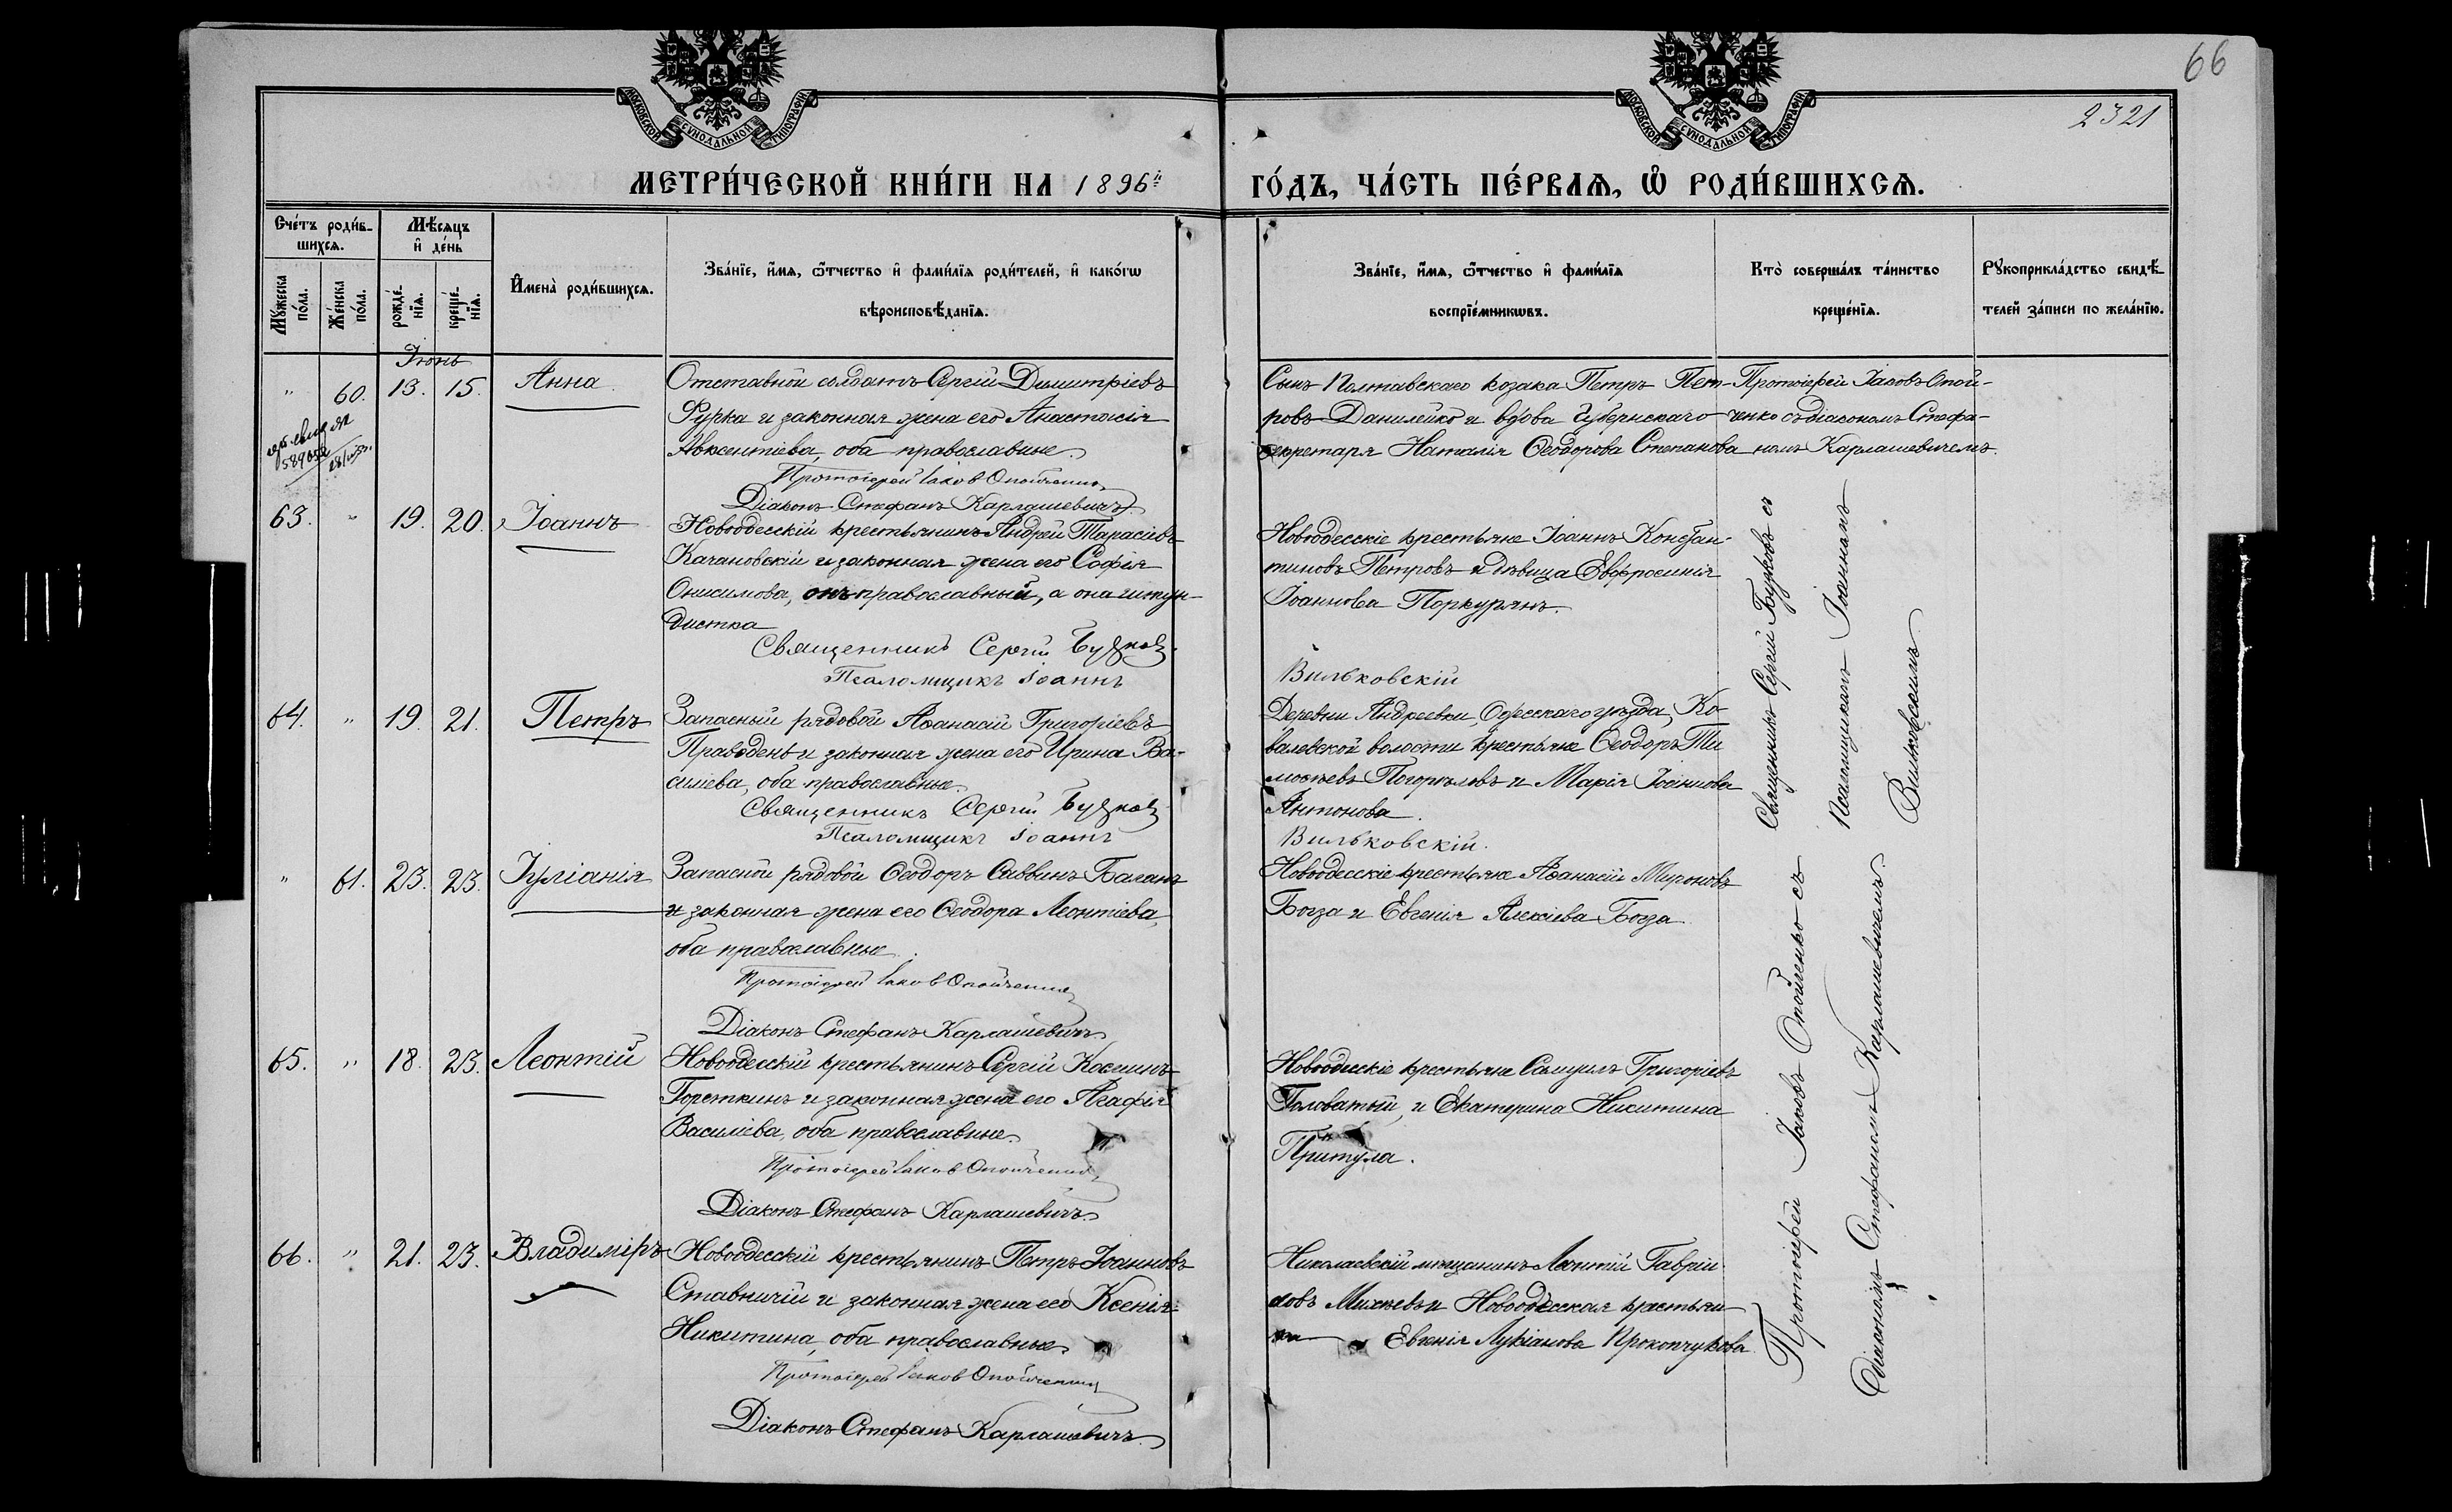 66
2321
МОСКОВСКОЙ СѴНОДАЛЬНОЙ ТИПОГРАФІИ
МОСКОВСКОЙ СѴНОДАЛЬНОЙ ТИПОГРАФІИ
МЕТРИ́ЧЕСКОЙ КНИ́ГИ НА 1896й ГО́ДЪ, ЧА́СТЬ ПЕ́РВАѦ, Ѽ РОДИ́ВШИХСѦ.
Сче́тъ роди́в-
шихсѧ.
Мꙋжеска по́ла.
Же́нска по́ла.
Мѣ́сѧцъ
и҆ де́нь
рожде́-
нїѧ.
креще́-
нїѧ.
И҆мена̀ роди́вшихсѧ.
Зва́нїе, и҆́мѧ, ѻ҆́тчество и҆ фами́лїѧ роди́телей, и҆ како́гѡ
вѣроисповѣ́данїѧ.
Зва́нїе, и҆́мѧ, ѻ҆́тчество и҆ фами́лїѧ
воспрїе́мникѡвъ.
Кто̀ соверша́лъ та́инство
креще́нїѧ.
Рꙋкоприкла́дство свидѣ́-
телей за́писи по жела́нїю.
Іюнь
" 60. 13. 15. Анна.
Отставной солдатъ Сергій Димитріевъ
Фурка и законная жена его Анастасія
Авксентіева, оба православные.
Протоіерей Іаковъ Опойченко
Діаконъ Стефанъ Карлашевичъ
Сынъ Полтавскаго козака Петръ Пет-
ровъ Данилейко и вдова Губернскаго
секретаря Наталія Ѳеодорова Степанова
Протоіерей Іаковъ Опой-
ченко съ діакономъ Стефа-
номъ Карлашевичемъ.
63. " 19. 20. Іоаннъ
Новоодесскій крестьянинъ Андрей Тарасіевъ
Качановскій и законная жена его Софія
Онисимова, онъ православный, а она штун-
дистка
Священникъ Сергій Бужковъ
Псаломщикъ Іоаннъ Вильковскій
Новоодесскіе крестьяне Іоаннъ Констан-
тиновъ Петровъ и дѣвица Евфросинія
Іоаннова Поркурянъ.
64. " 19. 21. Петръ
Запасный рядовой Аѳанасій Григоріевъ
Праводенъ и законная жена его Ирина Ва-
силіева, оба православные.
Священникъ Сергій Бужковъ
Псаломщикъ Іоаннъ Вильковскій.
Деревни Андреевки, Одесскаго уѣзда, Ко-
валевской волости крестьяне Ѳеодоръ Ти
моѳеевъ Погорѣловъ и Марія Іоаннова
Антонова.
Священникъ Сергій Бужковъ съ
псаломщикомъ Іоанномъ
Вильковскимъ.
" 61. 23. 23. Іуліанія
Запасной рядовой Ѳеодоръ Саввинъ Баланъ
и законная жена его Ѳеодора Леонтіева,
оба православные.
Протоіерей Іаковъ Опойченко
Діаконъ Стефанъ Карлашевичъ
Новоодесскіе крестьяне Аѳанасій Мироновъ
Богза и Евгенія Алексіева Богза.
65. " 18. 23. Леонтій
Новоодесскій крестьянинъ Сергій Косминъ
Гореткинъ и законная жена его Агафія
Василіева, оба православные.
Протоіерей Іаковъ Опойченко
Діаконъ Стефанъ Карлашевичъ.
Новоодесскіе крестьяне Самуилъ Григоріевъ
Головатый, и Екатерина Никитина
Притула.
66. " 21. 23. Владиміръ
Новоодесскій крестьянинъ Петръ Іоанновъ
Ставничій и законная жена его Ксенія
Никитина, оба православные.
Протоіерей Іаковъ Опойченко
Діаконъ Стефанъ Карлашевичъ.
Николаевскій мѣщанинъ Леонтій Гаврії
ловъ Михѣевъ и Новоодесская крестьян-
ка Евгенія Лукіанова Прокопчукова
Протоіерей Іаковъ Опойченко съ
діакономъ Стефаномъ Карлашевичемъ.